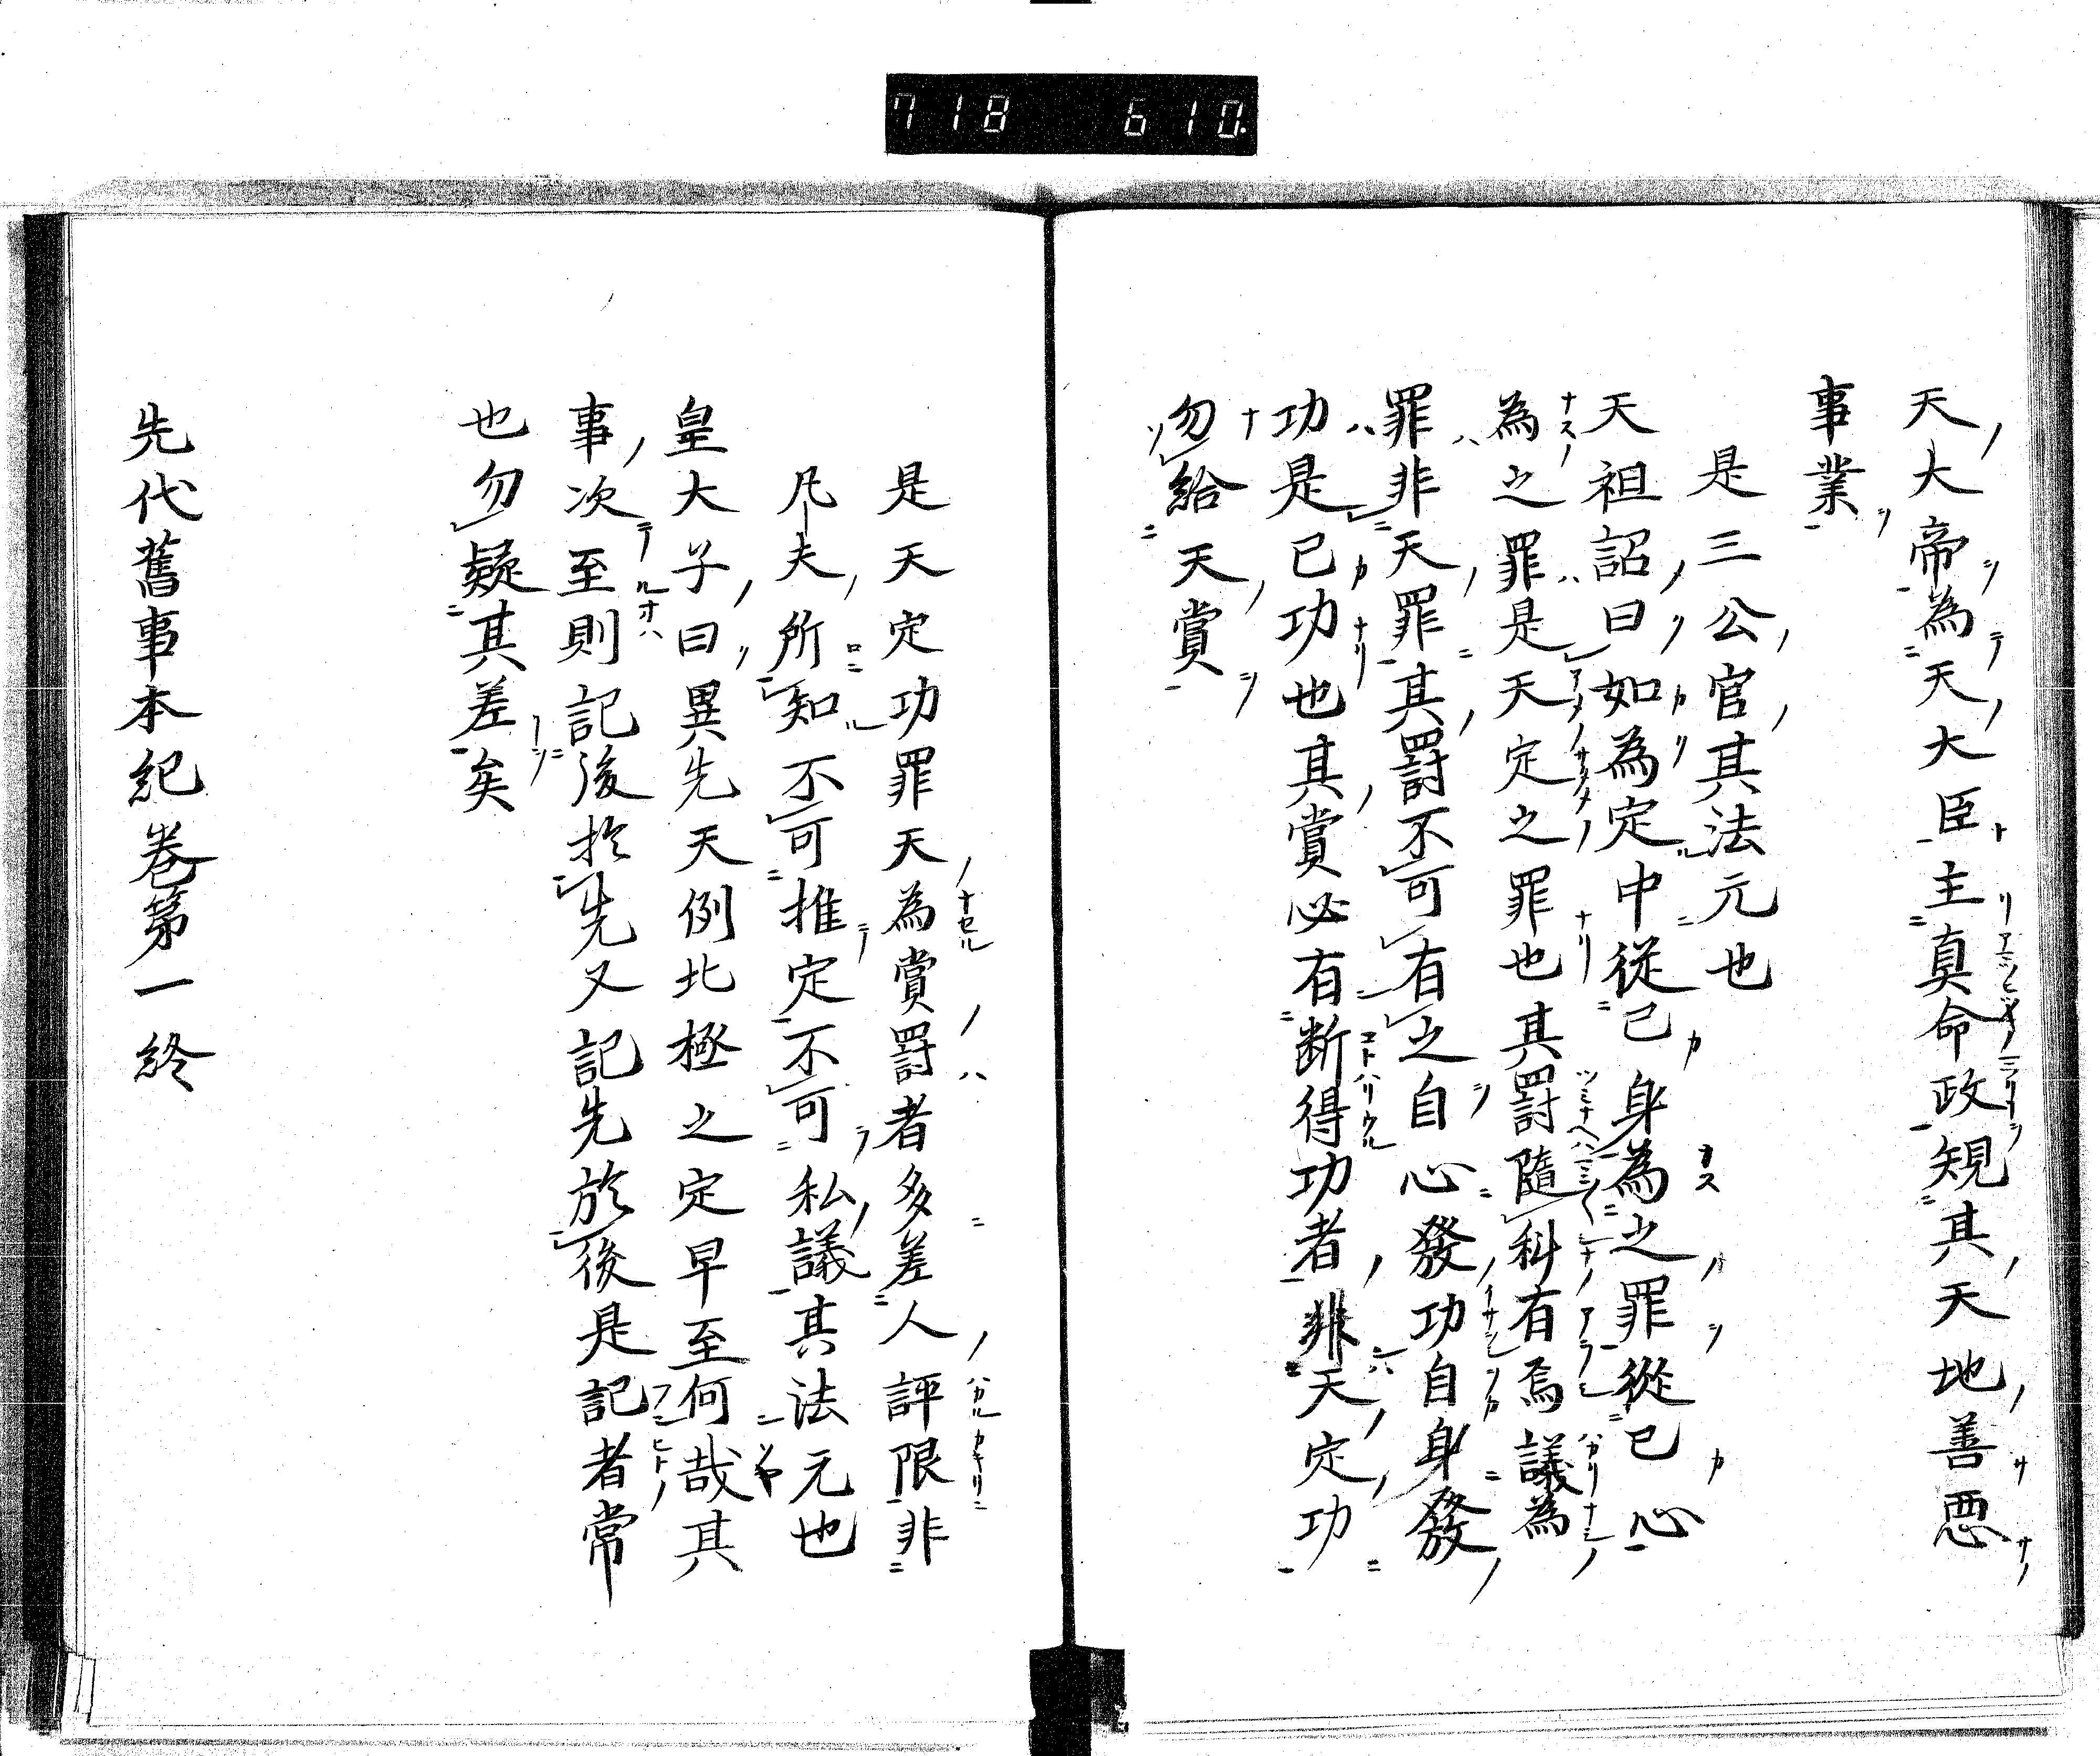 718 610.
天大帝為天大臣主真命政規其天地善悪
事業
是三公官其法元也
天祖詔曰如為定中從己身為之罪從已心
為之罪是天定之罪也其罰隨科有焉議為
罪非天罪其罰不可有之自心發功自身發
功是已功也其賞必有断得功者非天定功
勿給天賞
是天定功罪天為賞罰者多差人評限非
凡夫所知不可推定不可私議其法元也
皇大子曰異先天例北極之定早至何哉其
事次至則記後於先又記先於後是記者常
也勿疑其差矣
先代舊事本紀巻第一終